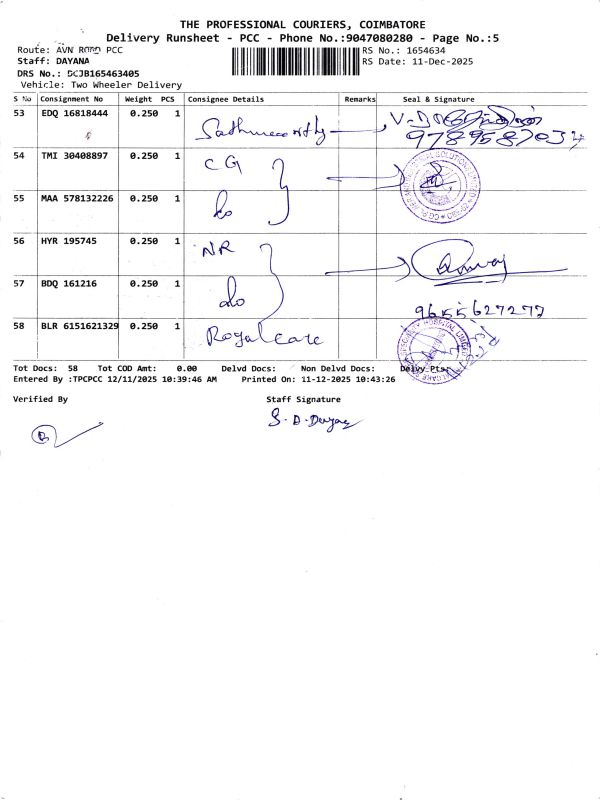 THE PROFESSIONAL COURIERS, COIMBATORE
Delivery Runsheet - PCC - Phone No.:9047080280 - Page No.:5
Route: AVN ROAD PCC RS No.: 1654634
Staff: DAYANA RS Date: 11-Dec-2025
DRS No.: DCJB165463405
Vehicle: Two Wheeler Delivery
S No Consignment No Weight PCS Consignee Details Remarks Seal & Signature
53 EDQ 16818444 0.250 1 Sathmoorthy
54 TMI 30408897 0.250 1 CG
55 MAA 578132226 0.250 1 do
56 HYR 195745 0.250 1 NR
57 BDQ 161216 0.250 1 do
9655627277
58 BLR 6151621329 0.250 1 Royal care
Tot Docs: 58 Tot COD Amt: 0.00 Delvd Docs: Non Delvd Docs: Delvy Pts:
Entered By :TPCPCC 12/11/2025 10:39:46 AM Printed On: 11-12-2025 10:43:26
Verified By Staff Signature
S. D. Dayana